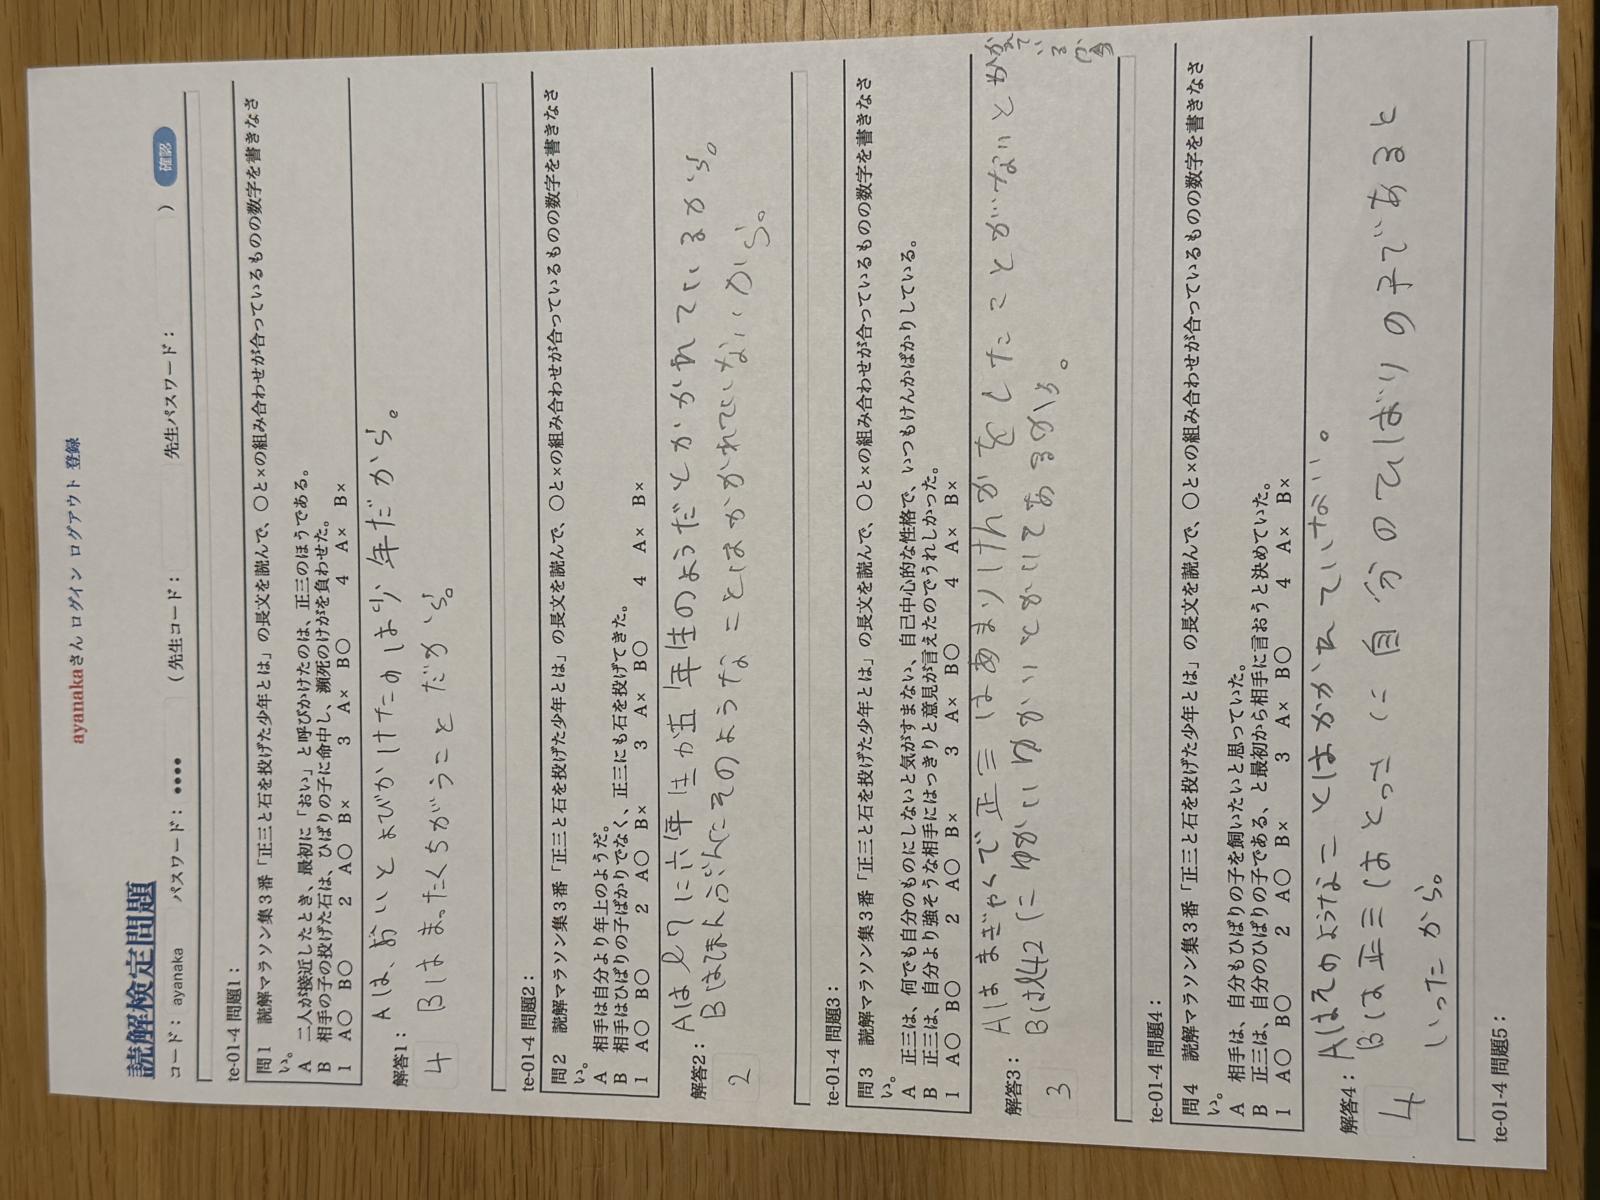 ayanakaさん ログイン ログアウト 登録
読解検定問題
コード： ayanaka　パスワード： ••••　（先生コード：　先生パスワード：　） 確認
te-01-4 問題1：
問１　読解マラソン集３番「正三と石を投げた少年とは」の長文を読んで、〇と×の組み合わせが合っているものの数字を書きなさ
い。
A　二人が接近したとき、最初に「おい」と呼びかけたのは、正三のほうである。
B　相手の子の投げた石は、ひばりの子に命中し、瀕死のけがを負わせた。
1　A〇　B〇　2　A〇　B×　3　A×　B〇　4　A×　B×
解答1： Aは、おいとよびかけたのは少年だから。
4　Bはまったくちがうことだから。
te-01-4 問題2：
問２　読解マラソン集３番「正三と石を投げた少年とは」の長文を読んで、〇と×の組み合わせが合っているものの数字を書きなさ
い。
A　相手は自分より年上のようだ。
B　相手はひばりの子ばかりでなく、正三にも石を投げてきた。
1　A〇　B〇　2　A〇　B×　3　A×　B〇　4　A×　B×
解答2： Aはl7に六年生か五年生のようだとかかれているから。
2　Bはほんぶんにそのようなことはかかれていないから。
te-01-4 問題3：
問３　読解マラソン集３番「正三と石を投げた少年とは」の長文を読んで、〇と×の組み合わせが合っているものの数字を書きなさ
い。
A　正三は、何でも自分のものにしないと気がすまない、自己中心的な性格で、いつもけんかばかりしている。
B　正三は、自分より強そうな相手にはっきりと意見が言えたのでうれしかった。
1　A〇　B〇　2　A〇　B×　3　A×　B〇　4　A×　B×
解答3： Aはまぎゃくで正三はあまりけんかをしたことがないとかかれているから
3　Bはl42にゆかいゆかいとかいてあるから。
te-01-4 問題4：
問４　読解マラソン集３番「正三と石を投げた少年とは」の長文を読んで、〇と×の組み合わせが合っているものの数字を書きなさ
い。
A　相手は、自分もひばりの子を飼いたいと思っていた。
B　正三は、自分のひばりの子である、と最初から相手に言おうと決めていた。
1　A〇　B〇　2　A〇　B×　3　A×　B〇　4　A×　B×
解答4： Aはそのようなことはかかれていない。
4　Bは正三はとっさに自分のひばりの子であると
いったから。
te-01-4 問題5：